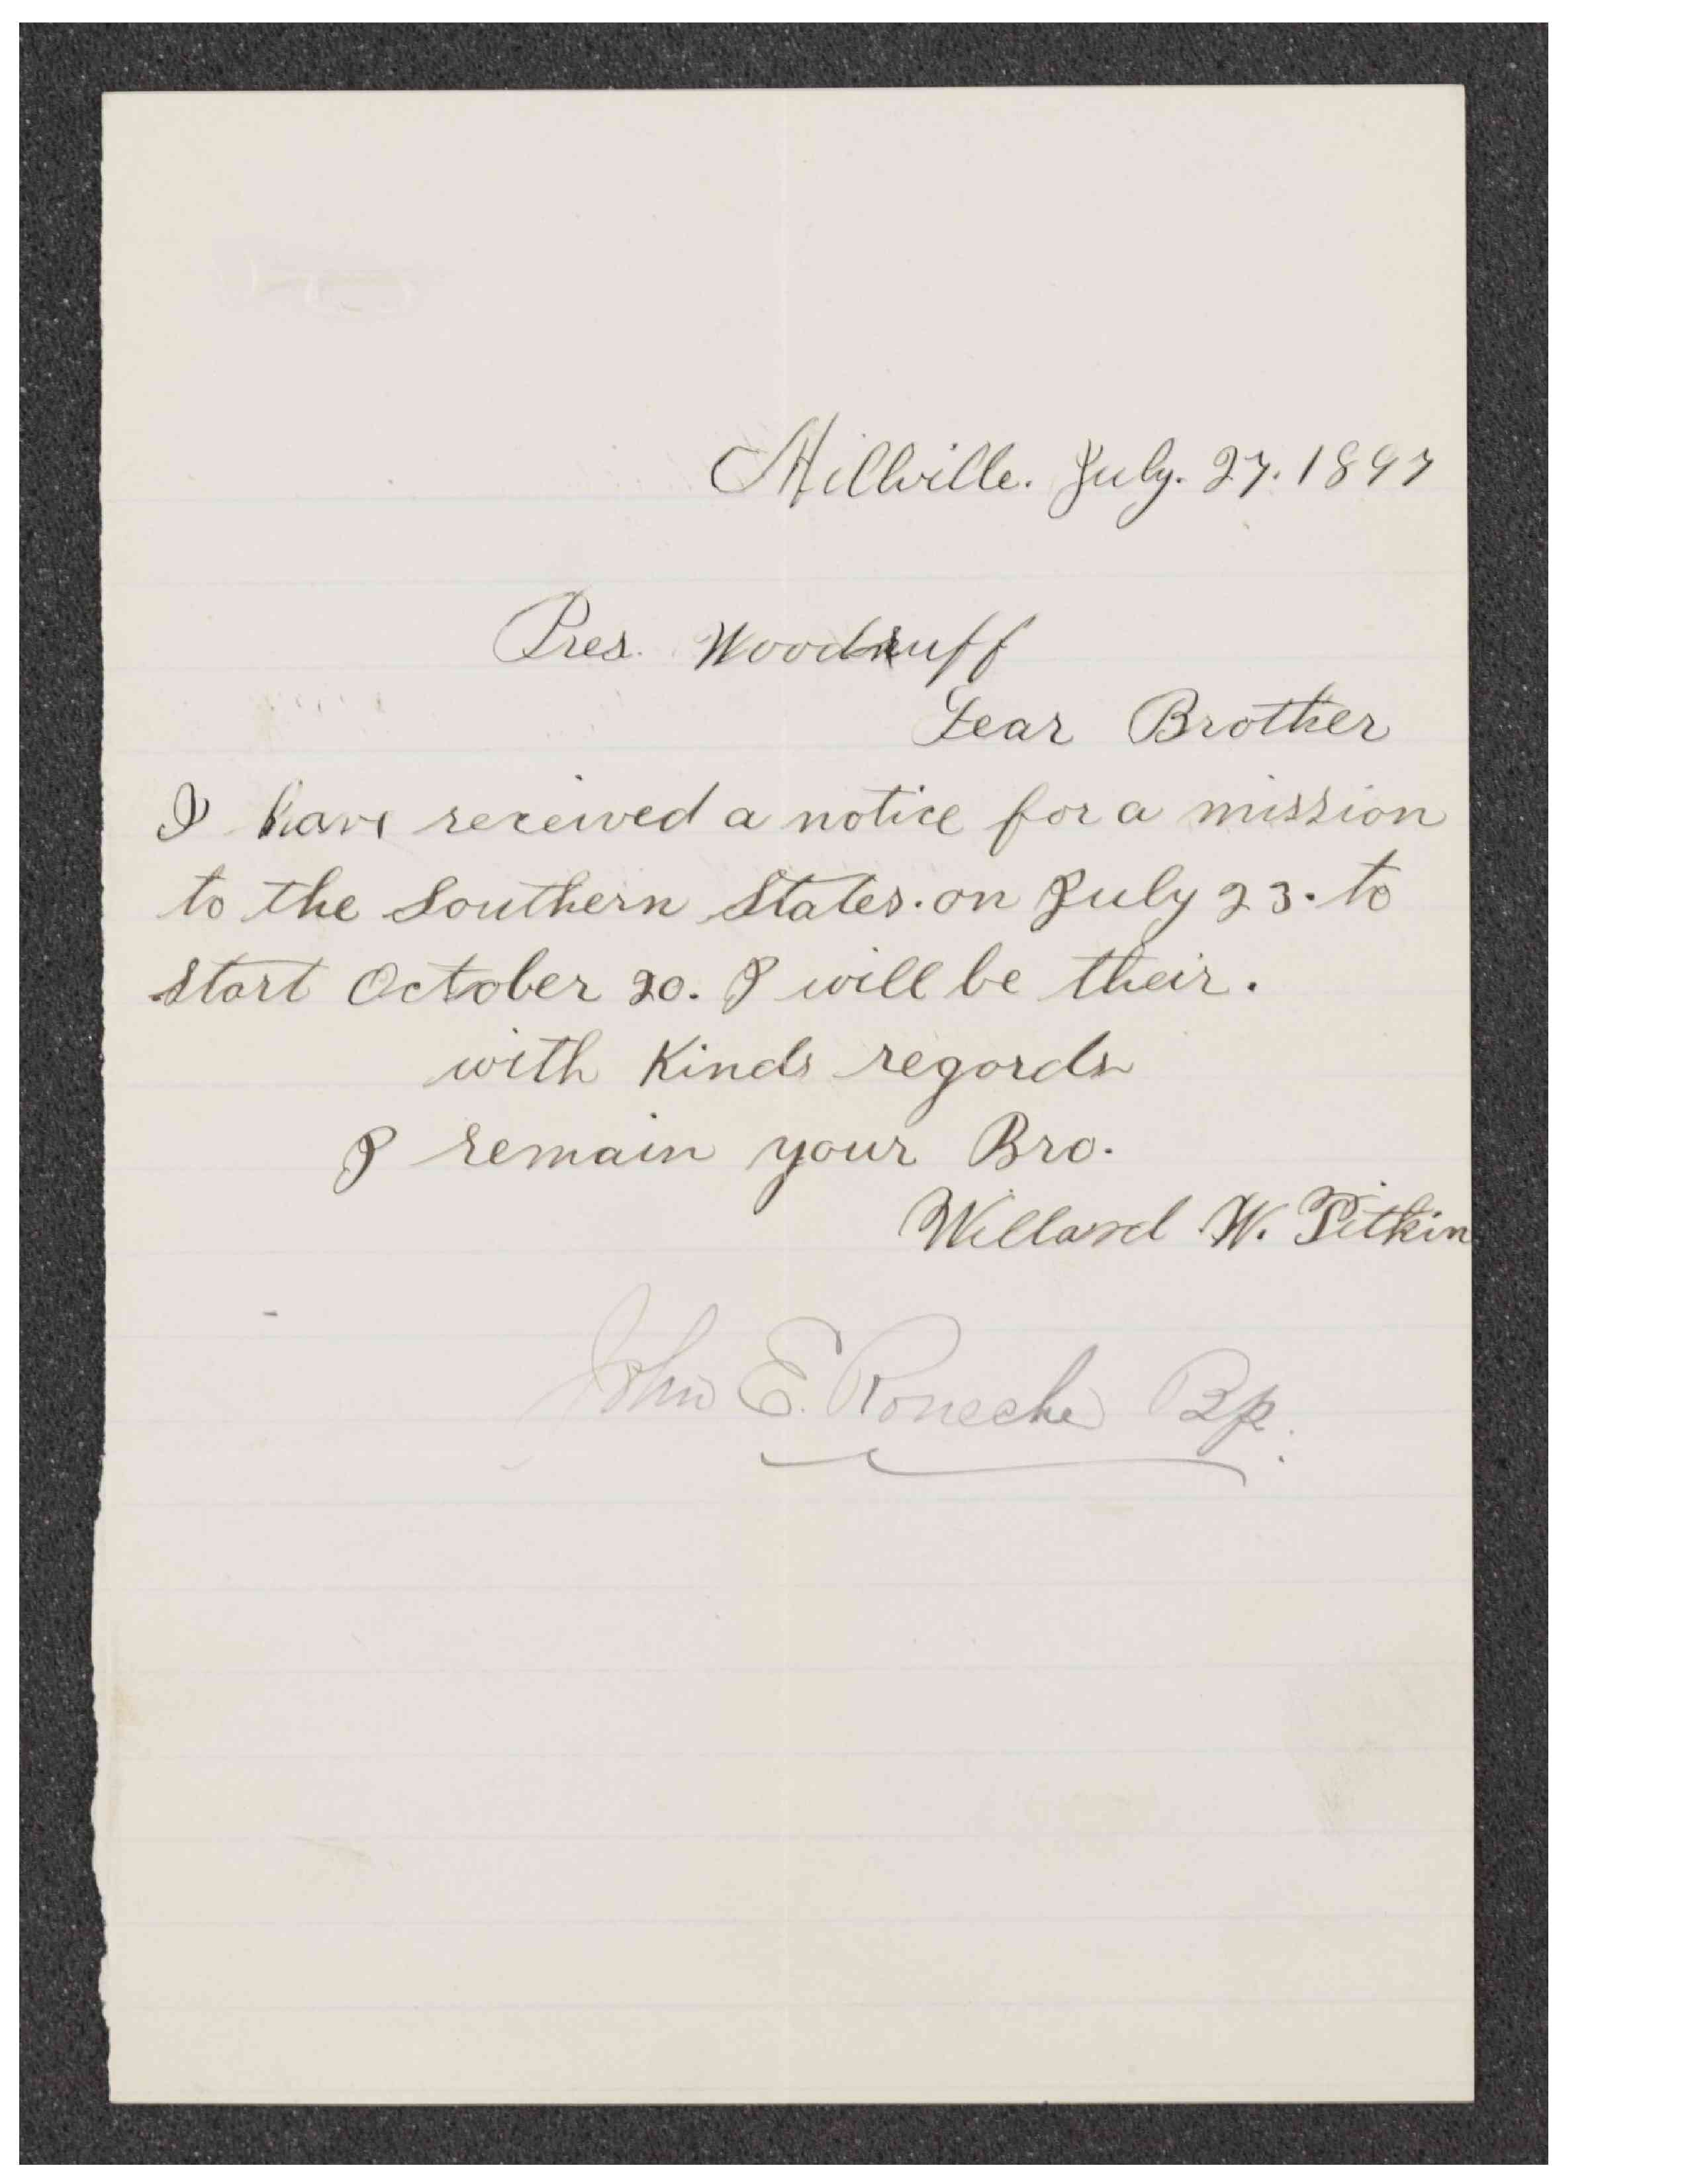 Millville. July. 27. 1897
Pres. Woodruff
Dear Brother
I have received a notice for a mission
to the Southern States. on July 23. to
start October 20. I will be their.
with Kinds regards
I remain your Bro.
Willard W. Pitkin
John E. Roueche Bp.